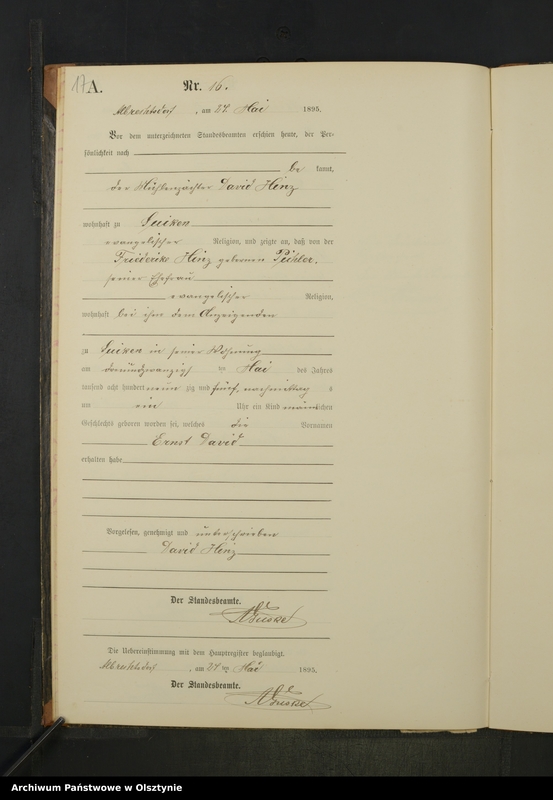 17
A.
Nr. 16.
Albrechtsdorf, am 24. Mai 1895.
Vor dem unterzeichneten Standesbeamten erschien heute, der Per-
sönlichkeit nach
be kannt,
der Mühlenpächter David Heinz
wohnhaft zu
evangelischer Religion, und zeigte an, daß von der
Friederike Heinz geborenen
seiner Ehefrau
evangelischer Religion,
wohnhaft bei ihm dem Anzeigenden
zu in seiner Wohnung
am dreiundzwanzigsten Mai des Jahres
tausend acht hundert neun zig und fünf, nachmittag s
um ein Uhr ein Kind männlichen
Geschlechts geboren worden sei, welches die Vornamen
Ernst David
erhalten habe
Vorgelesen, genehmigt und unterschrieben
David Heinz
Der Standesbeamte.
Die Uebereinstimmung mit dem Hauptregister beglaubigt.
Albrechtsdorf, am 24 ten Mai 1895.
Der Standesbeamte.
Archiwum Państwowe w Olsztynie